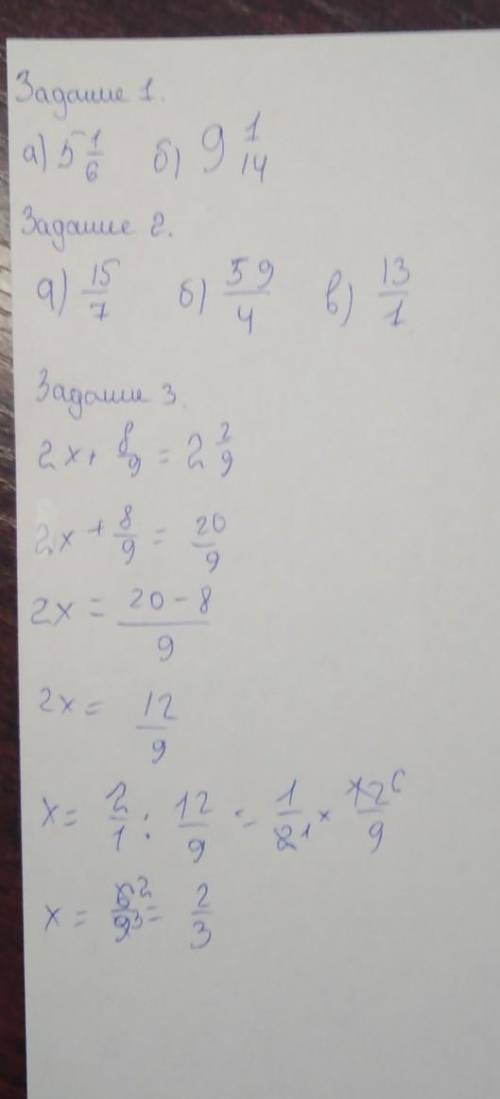 Задание 1.
а) 5 1/6 б) 9 1/14
Задание 2.
а) 15/7 б) 59/4 в) 13/1
Задание 3.
2x + 8/9 = 2 2/9
2x + 8/9 = 20/9
2x = (20 - 8)/9
2x = 12/9
x = 2/1 : 12/9 = 1/2 1 × 12 6/9
x = 6 2/9 3 = 2/3